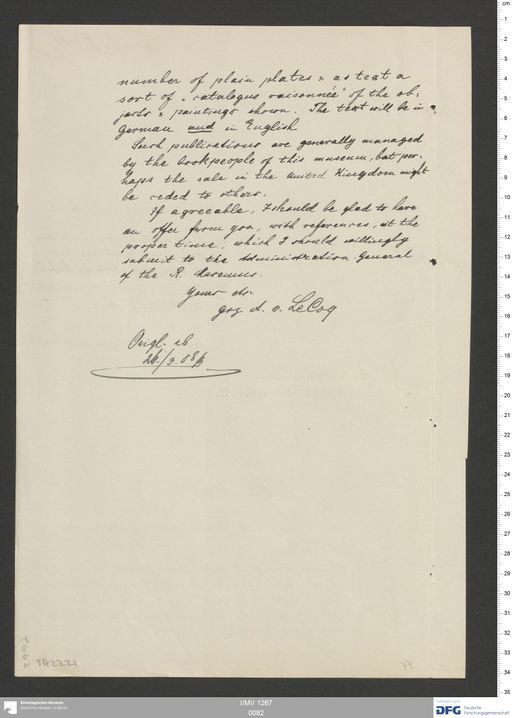 number of plain plates & as text a
sort of "catalogue raisonnée" of the ob-
jects & paintings shown. The text will be in
German and in English
Such publications are generally managed
by the bookpeople of this museum, but per-
haps the sale in the United Kingdom might
be ceded to others.
If agreeable, I should be glad to have
an offer from you, with references, at the
proper time, which I should willingly
submit to the Administration General
of the R. Museums.
Yours etc.
gez A. v. LeCoq
Origl. ab
26./3.08
TA2221
77
Ethnologisches Museum
Staatliche Museen zu Berlin
I/MV 1267
0082
DFG Deutsche
Forschungsgemeinschaft
cm
1
2
3
4
5
6
7
8
9
10
11
12
13
14
15
16
17
18
19
20
21
22
23
24
25
26
27
28
29
30
31
32
33
34
35